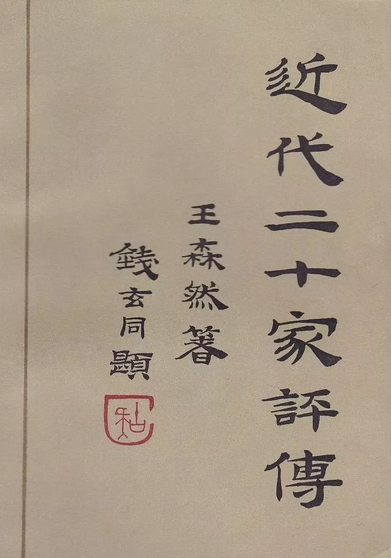 近代二十家評傳
王森然著
錢玄同題